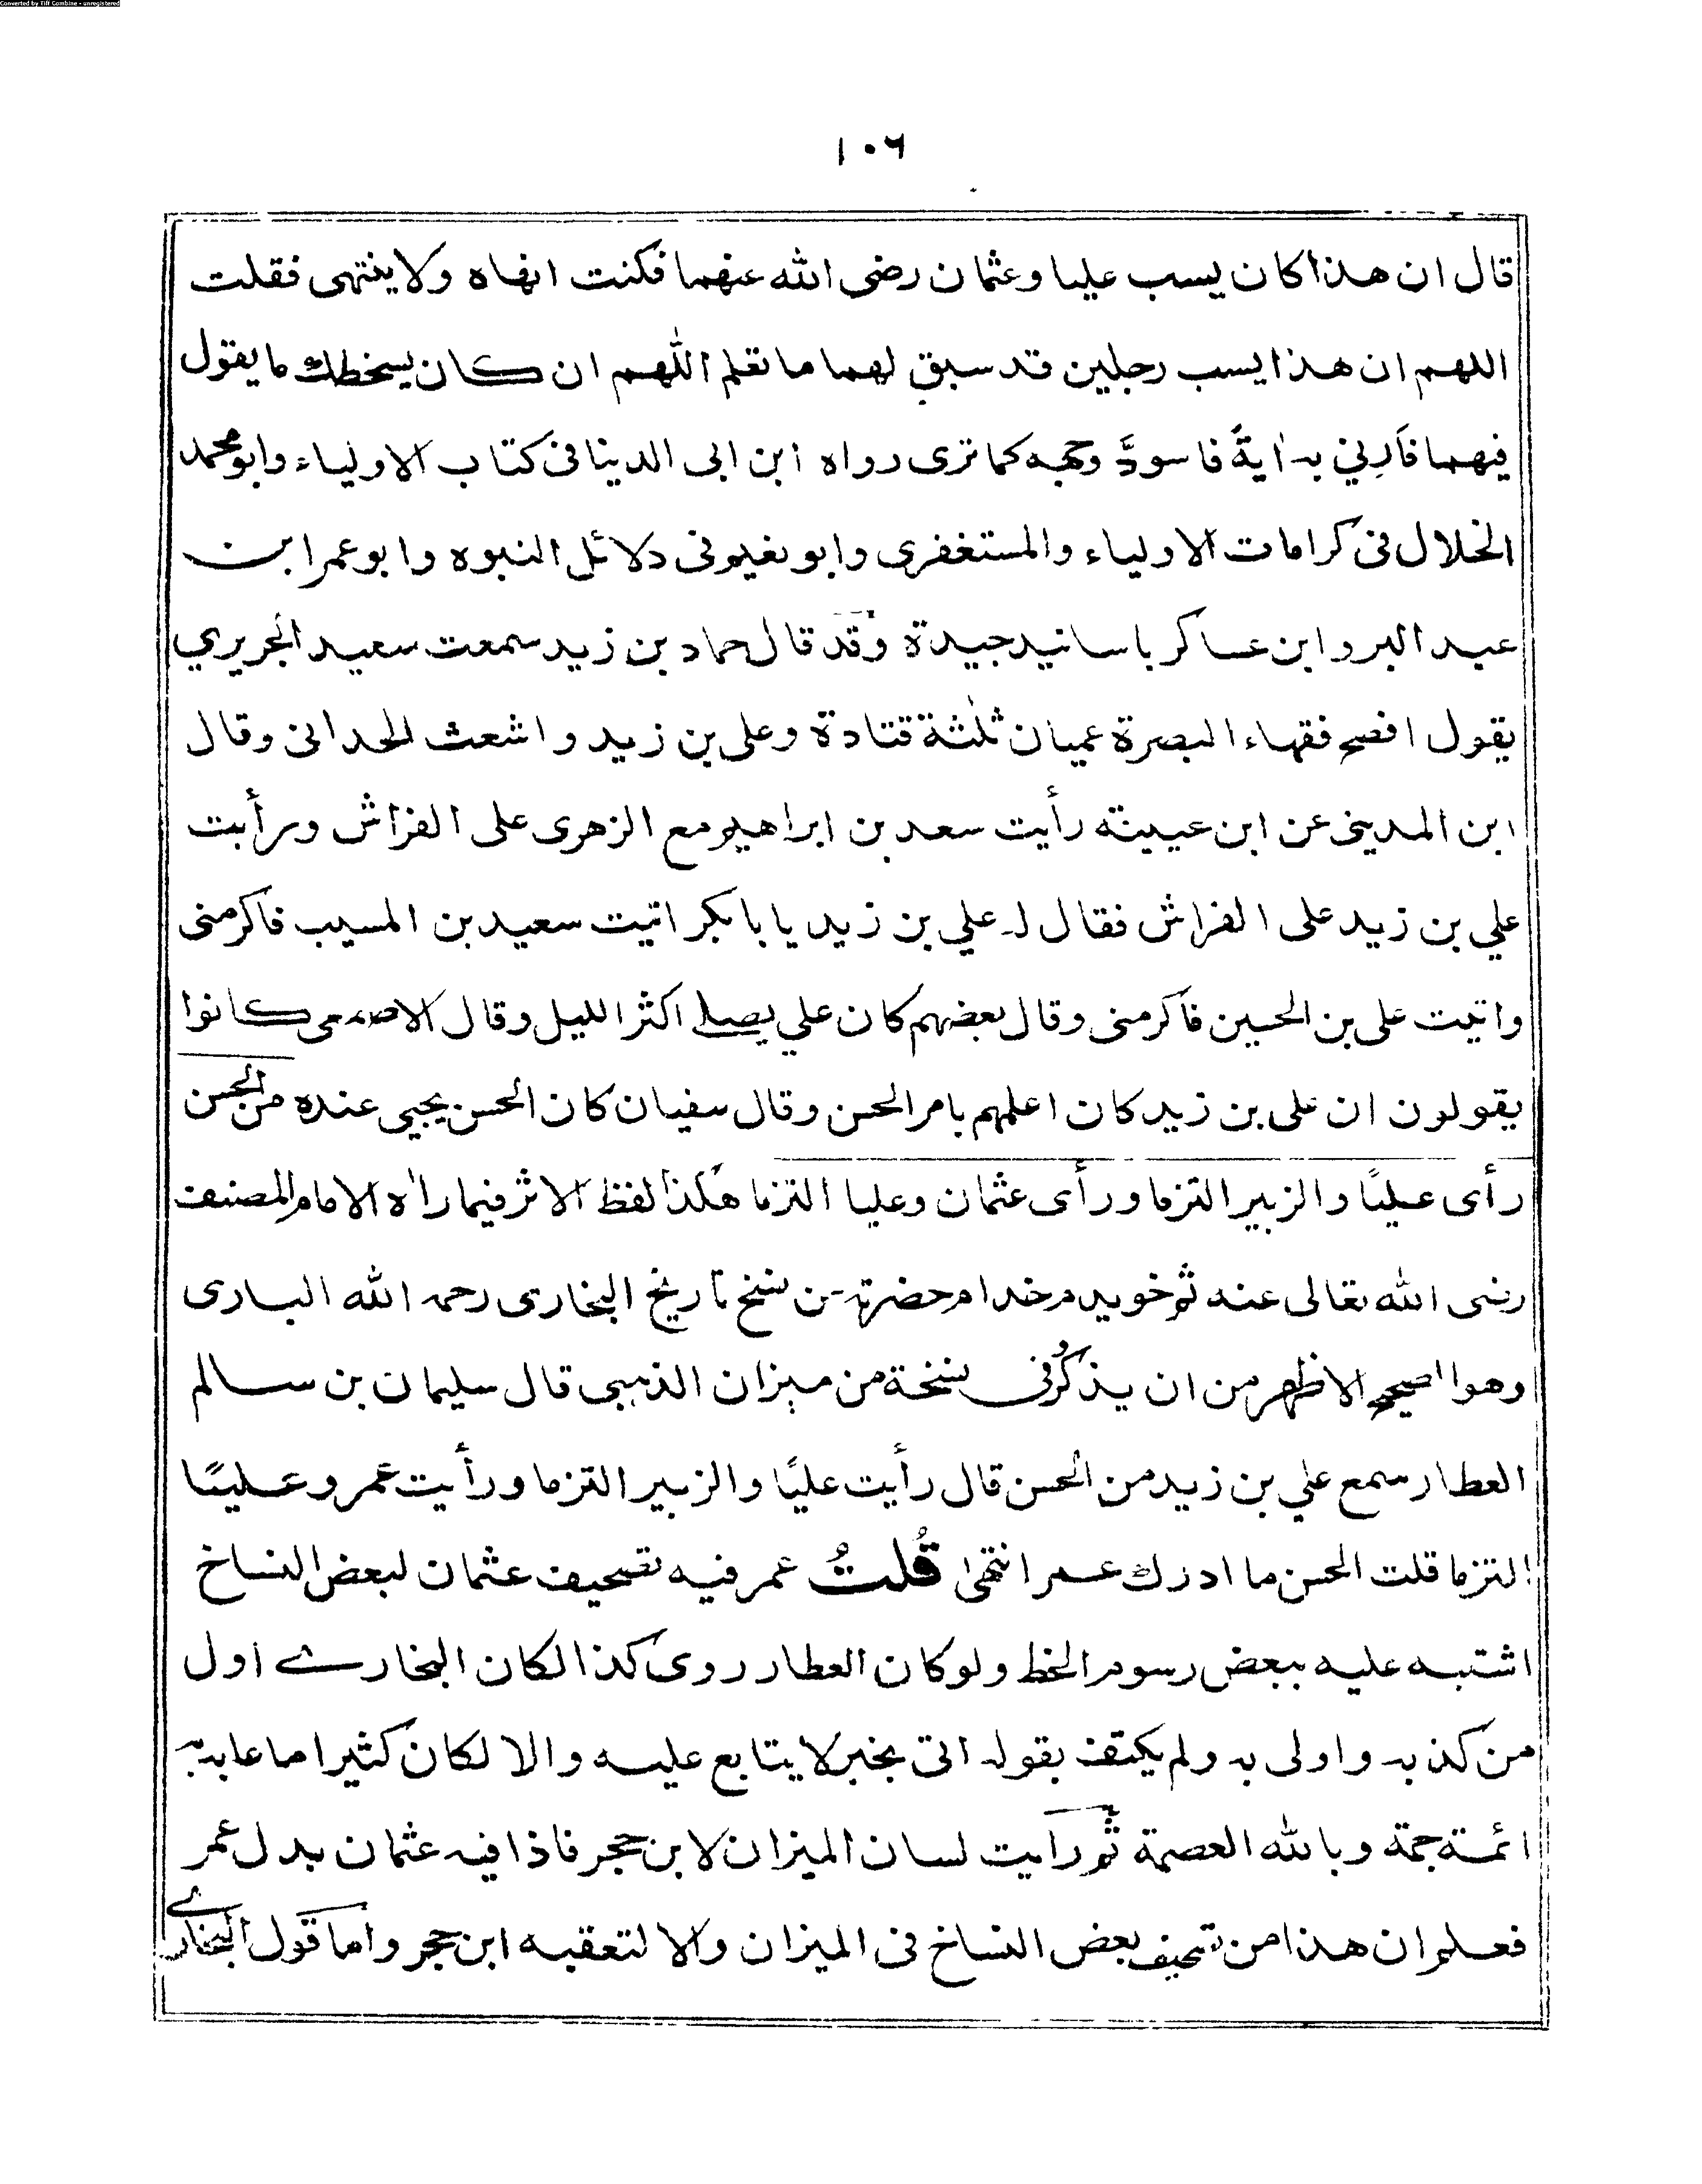 Converted by Tiff Combine - unregistered
١٠٦
قال ان هذا كان يسب عليا وعثمان رضى الله عنهما فكنت انهاه ولا ينتهى فقلت
اللهم ان هذا يسب رجلين قد سبق لهما ما تعلم اللهم ان كان يسخطك ما يقول
فيهما فَأَرِنِي به اٰيةً فاسودَّ وجهه كما ترى رواه ابن ابى الدينا فى كتاب الاولياء وابو محمد
الخلال فى كرامات الاولياء والمستغفرى وابو نعيم فى دلائل النبوه وابو عمر ابن
عبد البر وابن عساكر باسانيد جيدة وقد قال حماد بن زيد سمعت سعيد الجريري
يقول افصح فقهاء البصرة عميان ثلٰثة قتادة وعلى بن زيد واشعث الحدانى وقال
ابن المدينى عن ابن عيينة رأيت سعد بن ابراهيم مع الزهرى على الفراش ورأيت
علي بن زيد على الفراش فقال له علي بن زيد يا با بكر اتيت سعيد بن المسيب فاكرمنى
واتيت على بن الحسين فاكرمنى وقال بعضهم كان علي يصلے اكثر الليل وقال الاصمعى كانوا
يقولون ان على بن زيد كان اعلمهم بامر الحسن وقال سفيان كان الحسن يجيى عنده من الحسن
رأى عليًا والزبير التزما ورأى عثمان وعليا التزما هٰكذا لفظ الاثر فيما راٰه الامام المصنف
رضى الله تعالى عنه ثم خويدم خدام حضرته من نسخ تاريخ البخارى رحمه الله البارى
وهو الصحيح الاظهر من ان يذكر فى نسخة من ميزان الذهبى قال سليمان بن سالم
العطار سمع علي بن زيد من الحسن قال رأيت عليًا والزبير التزما ورأيت عمر وعليًا
التزما قلت الحسن ما ادرك عمر انتهىٰ قُلتُ عمر فيه تصحيف عثمان لبعض النساخ
اشتبه عليه ببعض رسوم الخط ولو كان العطار روى كذا لكان البخارے اول
من كذبه واولى به ولم يكتف بقوله اتى بخبر لا يتابع عليه والا لكان كثيرا ما عابه به
ائمة جمة وبالله العصمة ثم رايت لسان الميزان لابن حجر فاذا فيه عثمان بدل عمر
فعلم ان هذا من تصحيف بعض النساخ فى الميزان والا لتعقبه ابن حجر واما قول البخارے